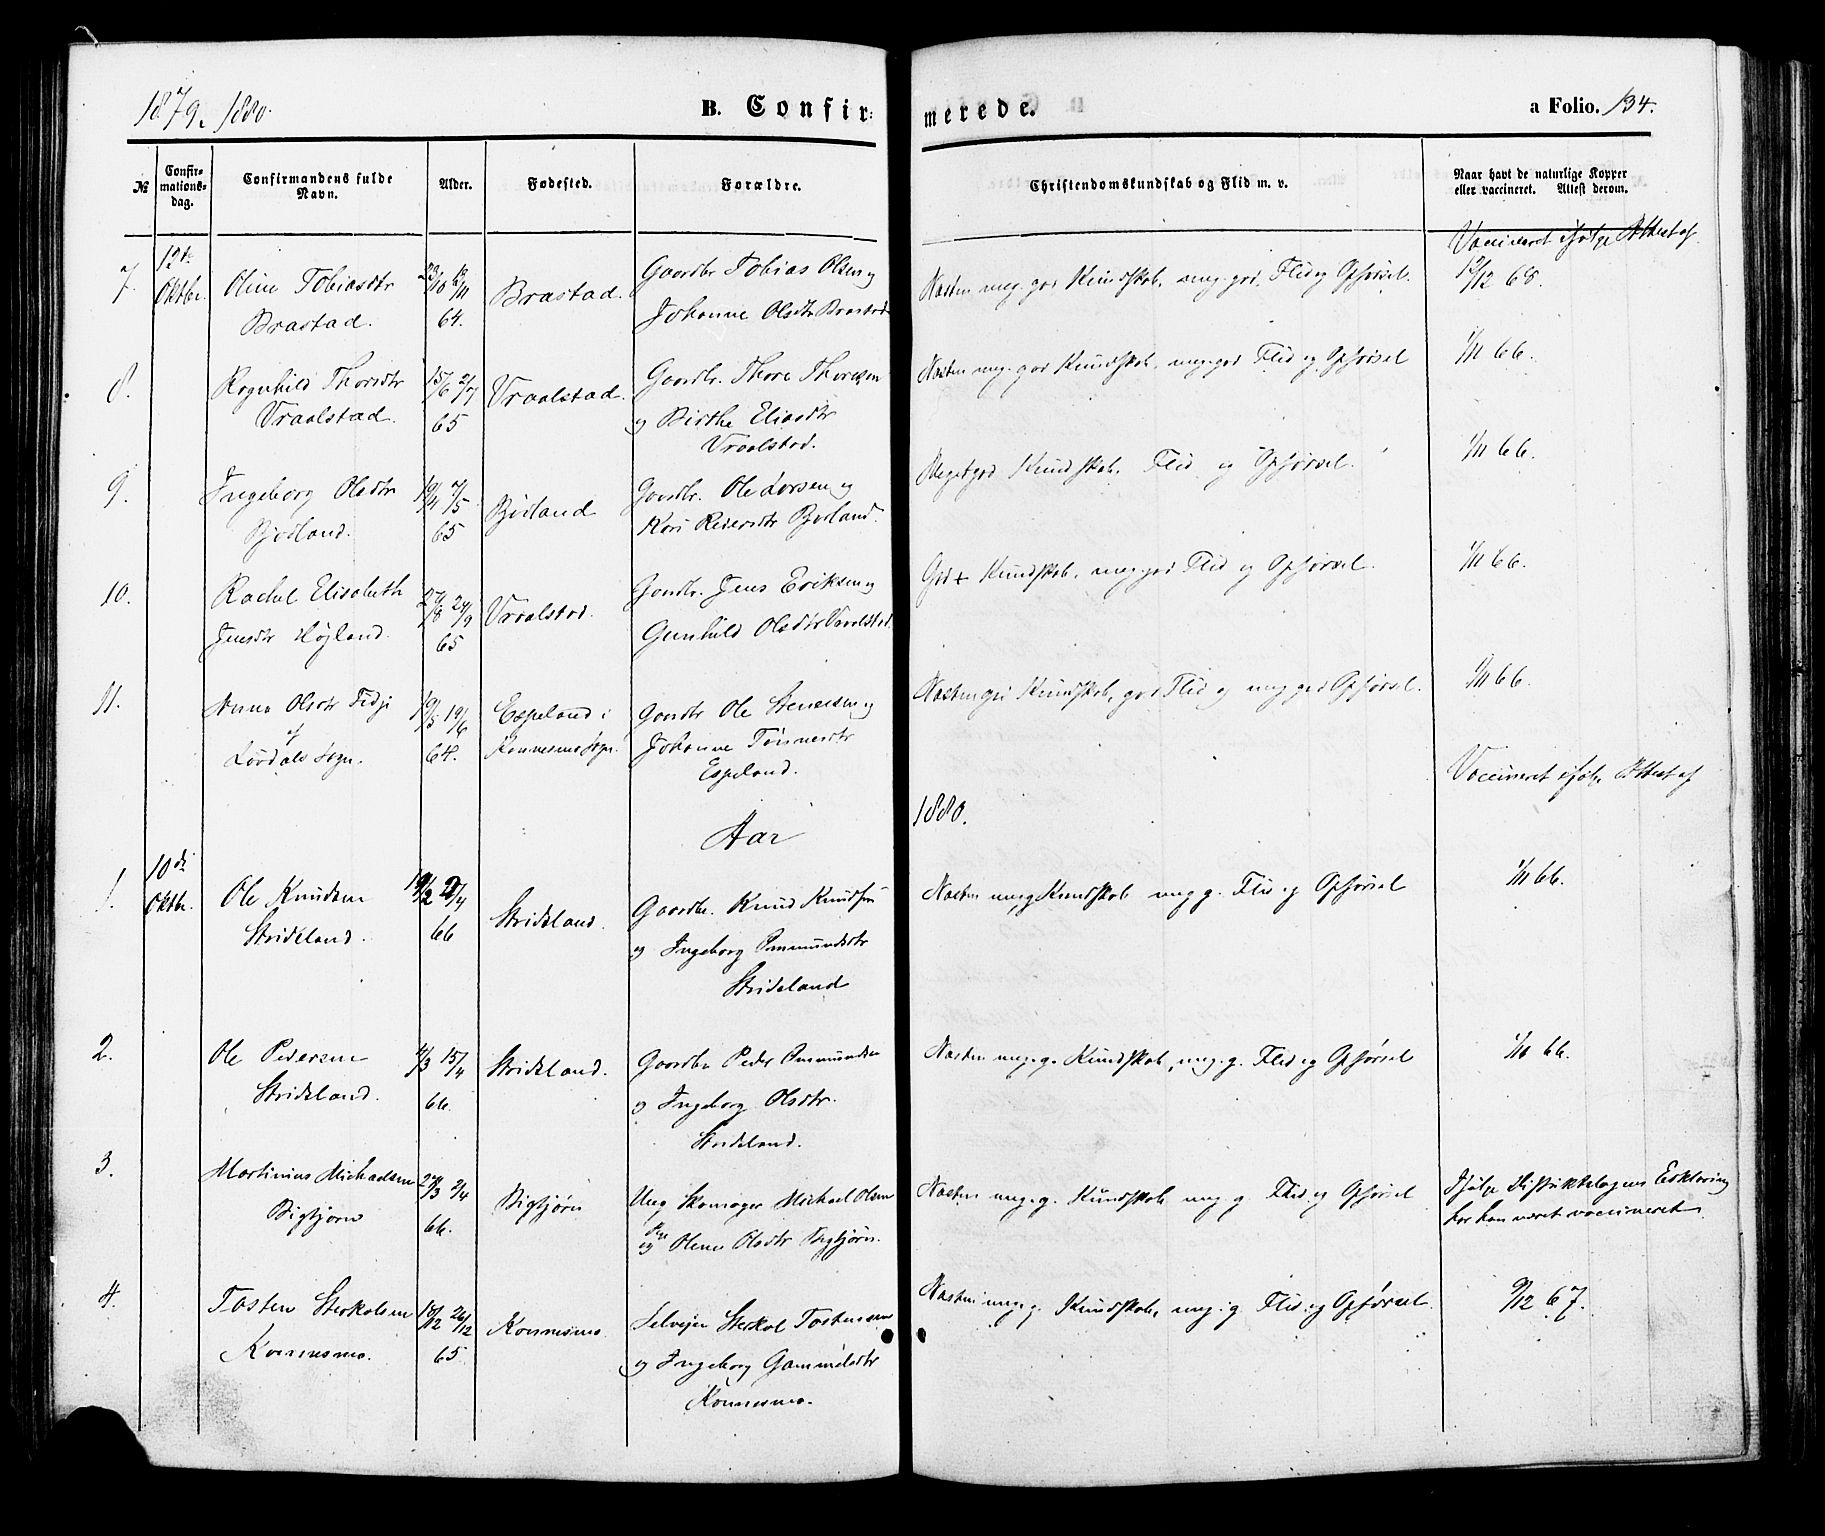 1879. 1880.
B. Confir-
merede.
a Folio. 134.
№
Confir-
mations-
dag.
Confirmandens fulde
Navn.
Alder.
Fødested.
Forældre.
Christendomskundskab og Flid m. v.
Naar havt de naturlige Kopper
eller vaccineret. Attest derom.
Vaccineret ifølge Attest af
7. 12te Oktbr. Oline Tobiasdtr Brastad. 64. Brastad. Gaardbr Tobias Olsen og Johanne Olsdtr Brastad Næsten meg. god Kundskab, meg. god Flid og Opførsel. 68.
8. Ragnhild Thorsdtr Vraalstad. 15/6 2/7 65 Vraalstad. Gaardbr. Thore Thoresen og Birthe Eliasdtr Vraalstad. Næsten meg. god Kundskab, meg. god Flid og Opførsel 1/11 66.
9. Ingeborg Olsdtr Bjødland. 65 Bjødland Gaardbr. Ole Larsen og Kari Pedersdtr Bjødland. Meget god Kundskab, Flid og Opførsel. 1/11 66.
10. Rachel Elisabeth Jensdtr Højland. 27/8 24/9 65 Vraalstad. Gaardbr. Jens Eriksen og Gunhild Olsdtr Vraalstad. God + Kundskab, meg. god Flid og Opførsel. 1/11 66.
11. Anna Olsdtr Fidje af Løvdals Sogn. 19/5 19/6 64. Espeland i Konnesmo Sogn. Gaardbr Ole Stenersen og Johanne Tønnesdtr Espeland. Næsten god Kundskab, god Flid og meg god Opførsel. 1/11 66.
Vaccineret ifølge Attest af
Aar
1880.
1. 10de Oktbr. Ole Knudsen Strideland. 66 Strideland. Gaardbr. Knud Knudsen og Ingeborg Ommundsdtr Strideland Næsten meg g Kundskab meg g. Flid og Opførsel 1/11 66.
2. Ole Pedersen Strideland. 4/3 15/4 66. Strideland. Gaardbr Peder Ommundsen og Ingeborg Olsdtr. Strideland. Næsten meg. g. Kundskab, meg. g. Flid og Opførsel 1/10 66.
3. Martinius Michaelsen Bigbjørn 2/4 66. Bigbjørn Ung Skomager Michael Olsen og Pige Olene Olsdtr Bigbjørn. Næsten meg. g. Kundskab meg g Flid og Opførsel Ifølge Distriktslægens Erklæring har han været vaccineret.
4. Tosten Sterkolsen Konnesmo. 18/12 26/12 65 Konnesmo. Selvejer Sterkol Tostensen og Ingeborg Gammelsdtr Konnesmo. Næsten meg. g. Kundskab, meg. g. Flid og Opførsel. 9/12 67.